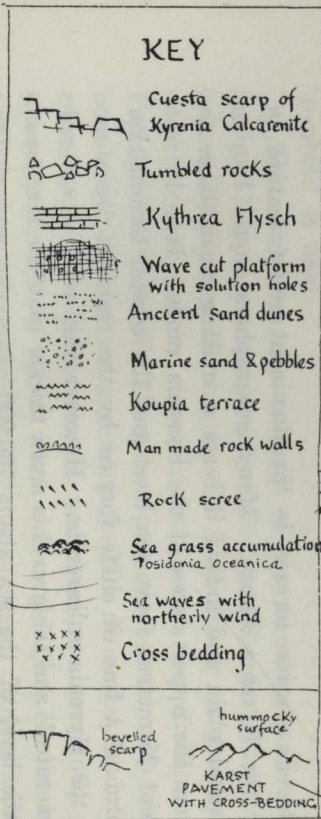 KEY
Cuesta scarp of
Kyrenia Calcarenite
Tumbled rocks
Kythrea Flysch
Wave cut platform
with solution holes
Ancient sand dunes
Marine sand & pebbles
Koupia terrace
Man made rock walls
Rock scree
Sea grass accumulation
Posidonia oceanica
Sea waves with
northerly wind
Cross bedding
bevelled
scarp
hummocky
surface
KARST
PAVEMENT
WITH CROSS-BEDDING